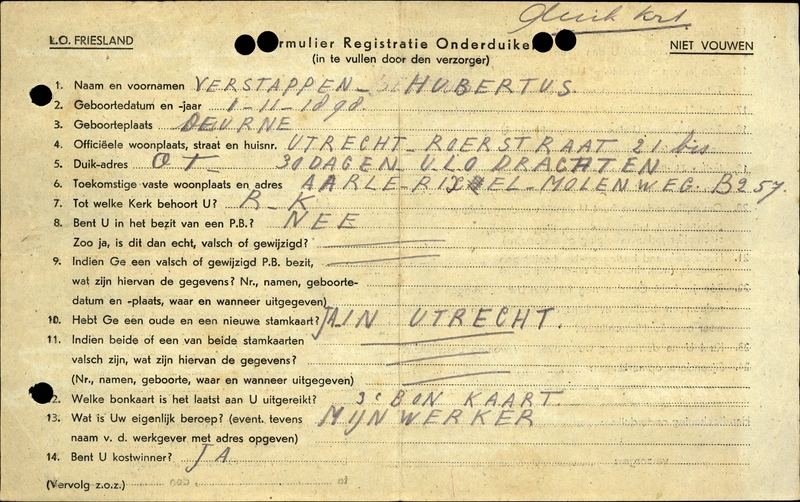 Duik krt
L.O. FRIESLAND
rmulier Registratie Onderduike
(in te vullen door den verzorger)
NIET VOUWEN
1. Naam en voornamen VERSTAPPEN - HUBERTUS
2. Geboortedatum en -jaar 1-11-1898.
3. Geboorteplaats DEURNE
4. Officiëele woonplaats, straat en huisnr. UTRECHT - ROERSTRAAT 21 bis
5. Duik-adres O T - 30 DAGEN ULO DRACHTEN
6. Toekomstige vaste woonplaats en adres AARLE-RIXEL-MOLENWEG. B257.
7. Tot welke Kerk behoort U? R-K
8. Bent U in het bezit van een P.B.? NEE
Zoo ja, is dit dan echt, valsch of gewijzigd?
9. Indien Ge een valsch of gewijzigd P.B. bezit,
wat zijn hiervan de gegevens? Nr., namen, geboorte-
datum en -plaats, waar en wanneer uitgegeven)
10. Hebt Ge een oude en een nieuwe stamkaart? JA IN UTRECHT.
11. Indien beide of een van beide stamkaarten
valsch zijn, wat zijn hiervan de gegevens?
(Nr., namen, geboorte, waar en wanneer uitgegeven)
2. Welke bonkaart is het laatst aan U uitgereikt? 3e BON KAART
13. Wat is Uw eigenlijk beroep? (event. tevens MIJNWERKER
naam v. d. werkgever met adres opgeven)
14. Bent U kostwinner? JA
(Vervolg z.o.z.)